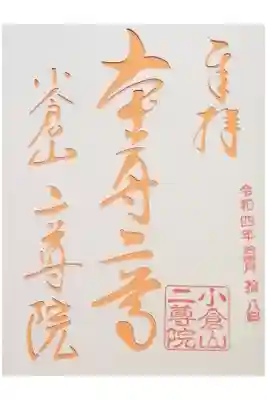 奉拝
令和四年 拾八日
本尊二尊
小倉山
二尊院
小倉山 二尊院